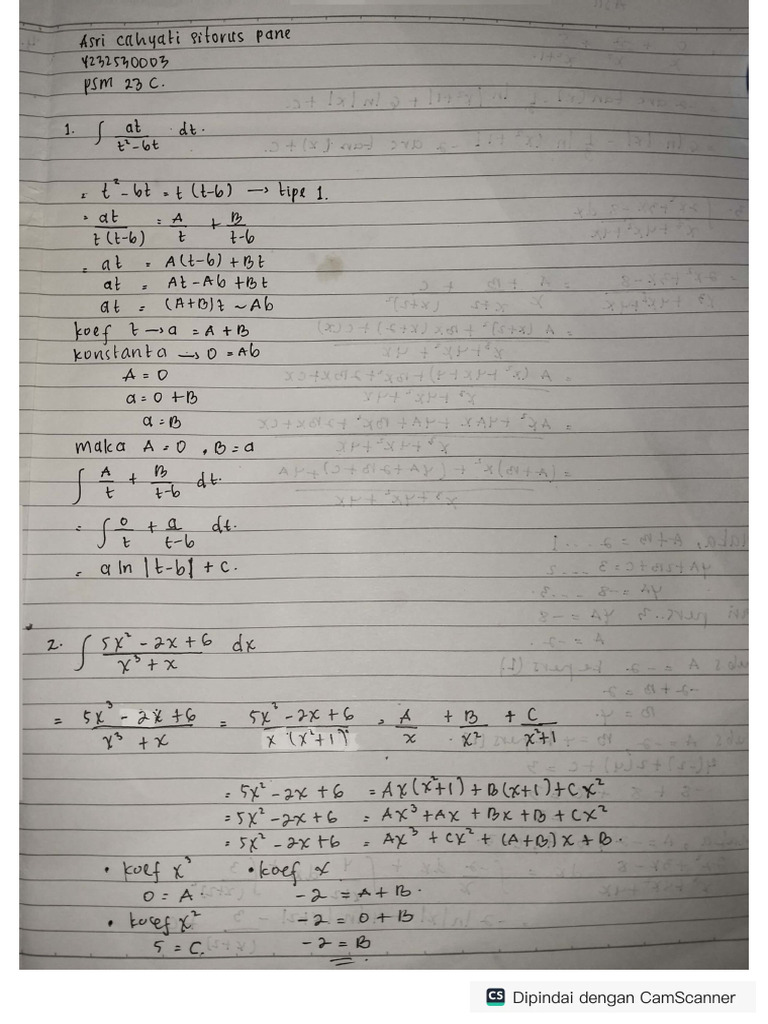 Asri cahyati sitorus pane
4232530003
PSM 23 C.
1. ∫ at / t² - 6t dt.
= t² - 6t = t (t-6) → tipe 1.
= at / t (t-6) = A / t + B / t-6
= at = A(t-6) + Bt
at = At - A6 + Bt
at = (A+B)t ~ A6
koef t → a = A + B
konstanta → 0 = A6
A = 0
a = 0 + B
a = B
maka A = 0 , B = a
∫ A / t + B / t-6 dt.
= ∫ 0 / t + a / t-6 dt.
= a ln |t-6| + c.
2. ∫ 5x² - 2x + 6 / x³ + x dx
= 5x³ - 2x + 6 / x³ + x = 5x² - 2x + 6 / x (x²+1) = A / x + B / x² + C / x²+1
= 5x² - 2x + 6 = Ax (x²+1) + B(x+1) + Cx²
= 5x² - 2x + 6 = Ax³ + Ax + Bx + B + Cx²
= 5x² - 2x + 6 = Ax³ + Cx² + (A+B)x + B.
• koef x³ • koef x
0 = A. -2 = A + B.
• koef x² -2 = 0 + B
5 = C. -2 = B
CS Dipindai dengan CamScanner